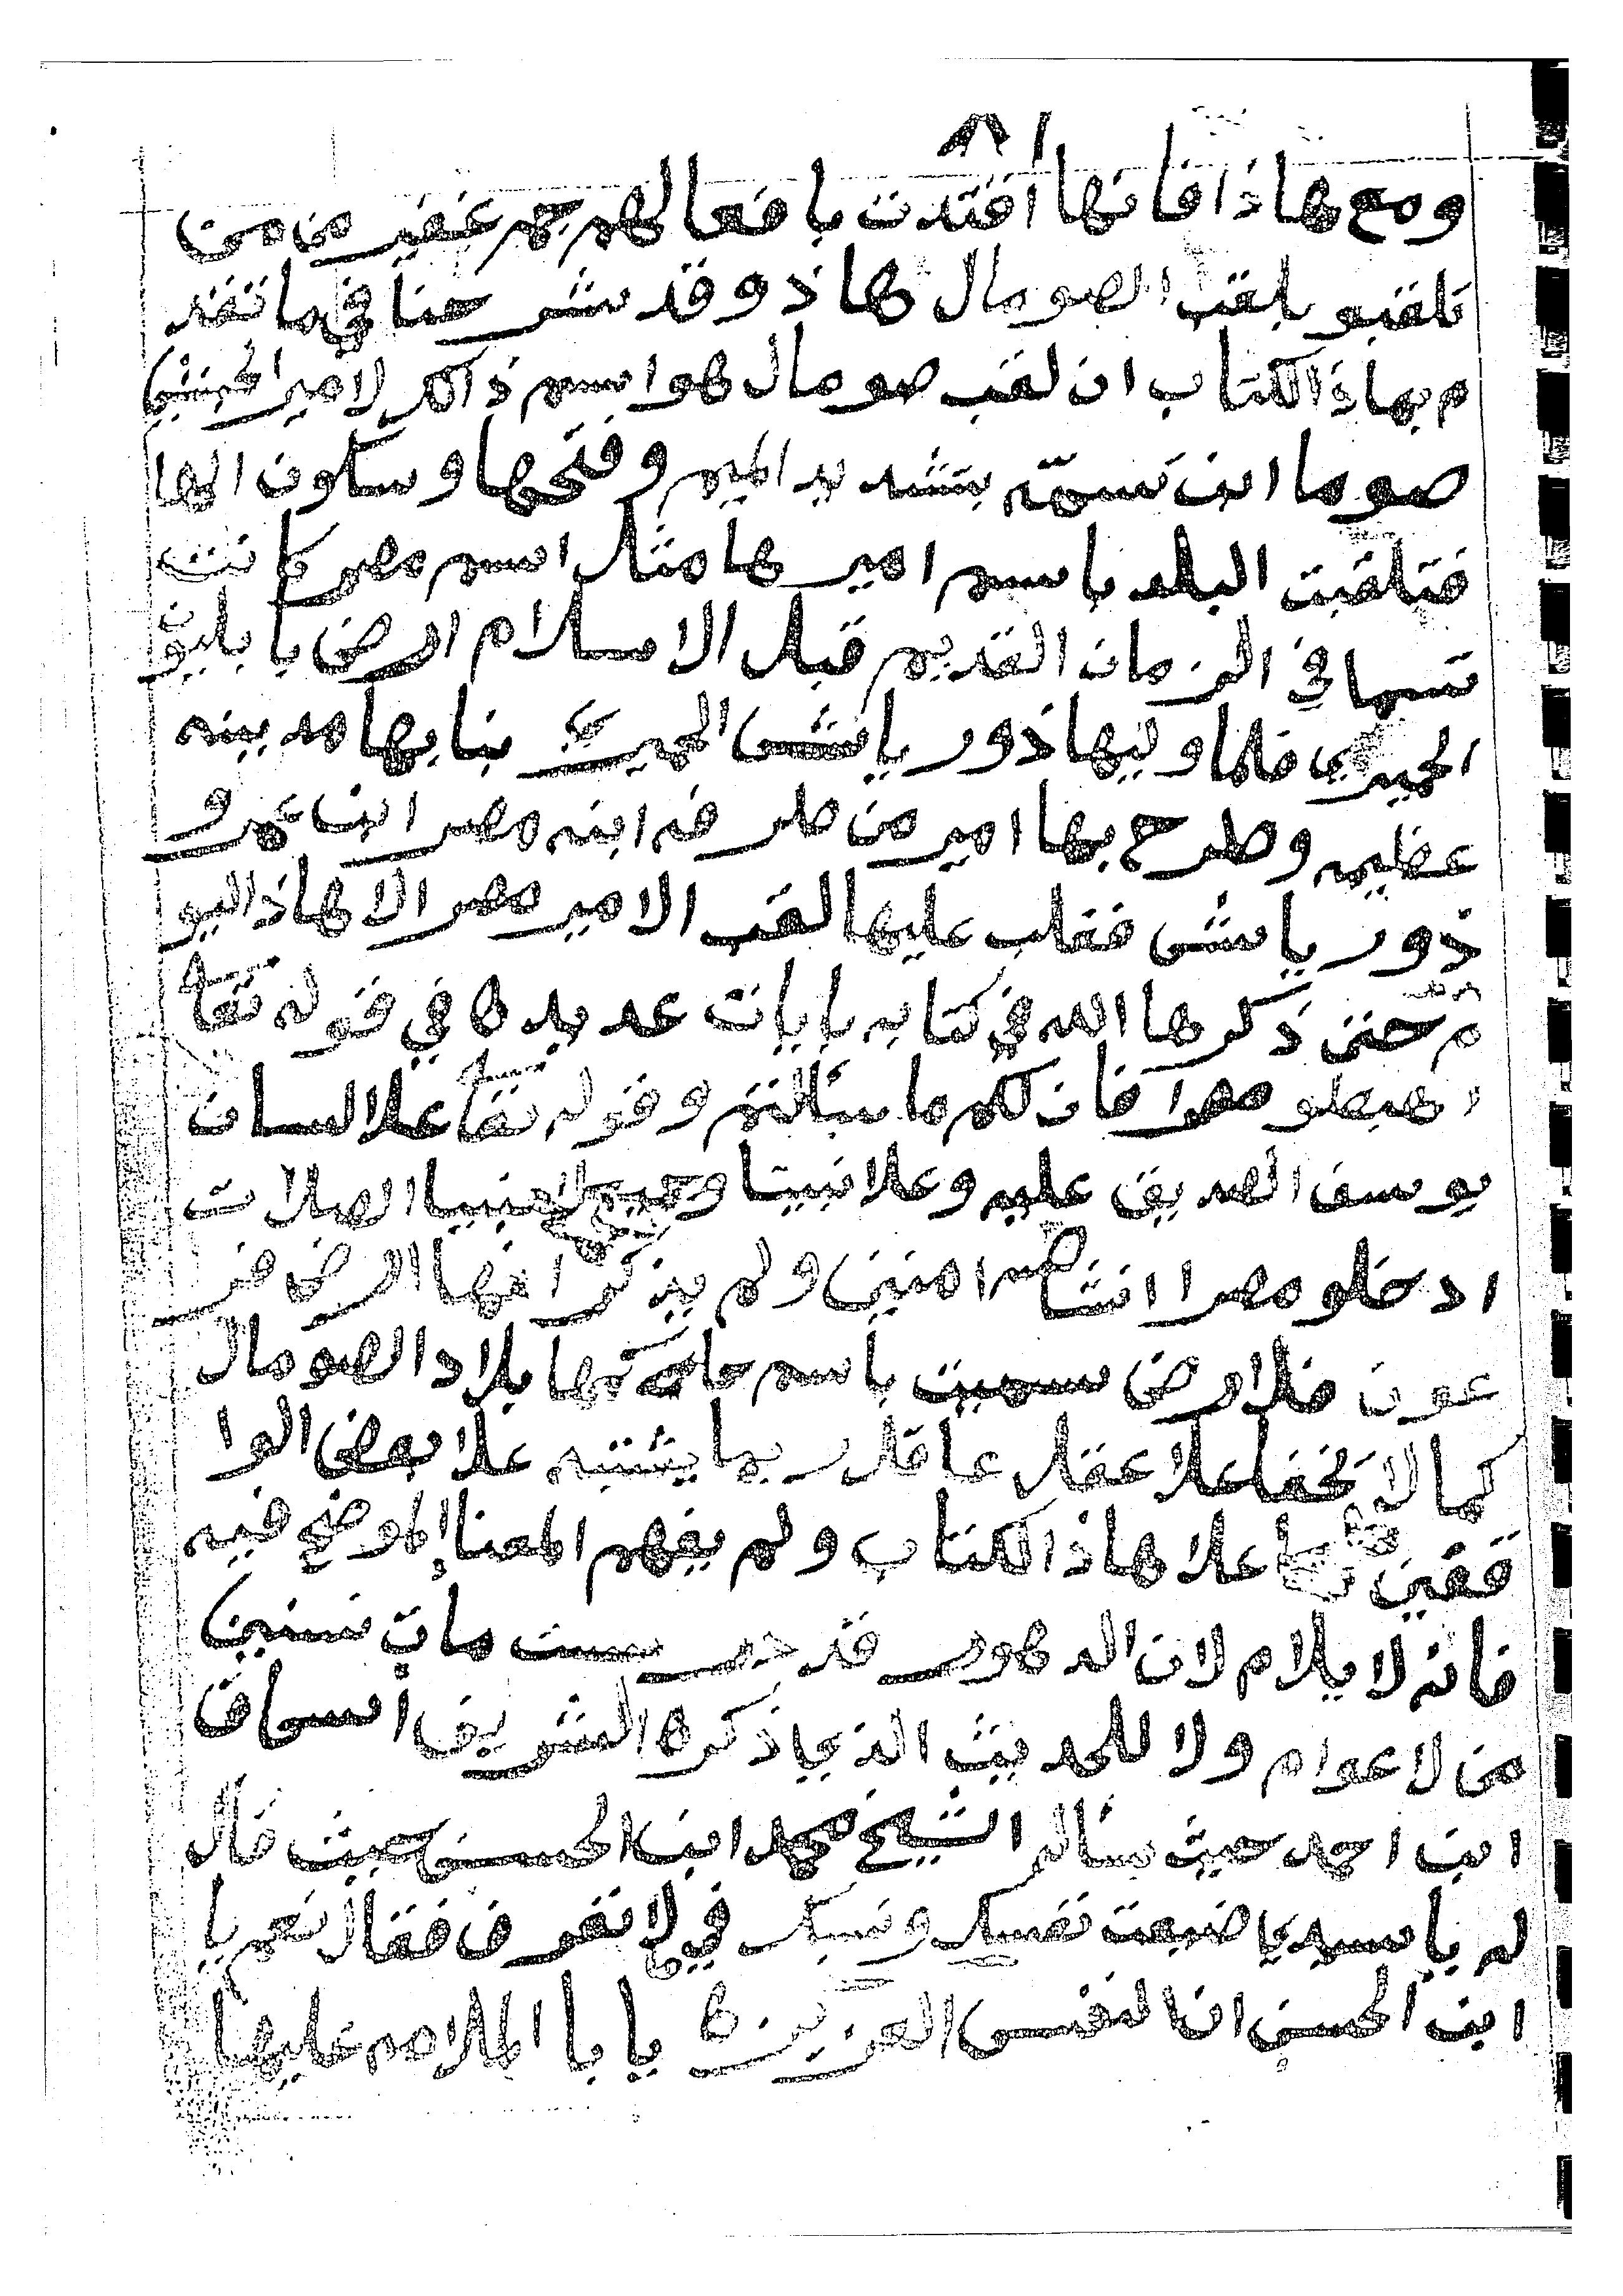 ٨١
ومع هاذا فانها اقتدت بافعالهم جم غفير من من
تلقبو بلقب الصومال هاذ وقد شرحنا في ما تقد
م بهاذ الكتاب ان لقب صومال هوا بسم ذاكر لامير الحبشي
صوما ابن تسمّه بتشديد الميم وفتحها وسكون الها
فتلقبت البلد باسم اميرها مثل اسم مصر كانت
تسما في الزمان القديم قبل الاسلام ارض بابليون
الحميري فلما وليها ذورياش الحميري بنا بها مدينه
عظيمه وطرح بها امير من طرفه ابنه مصر ابن عمرو
ذورياش فغلب عليها لقب الامير مصر الا هاذ اليو
م حتى ذكرها الله في كتابه بايات عديده في قوله تعا
اهبطو مصرا فان لكم ما سألتم وقوله تعا علا لسان
يوسف الصديق عليه وعلا نبينا وجميع لانبيا الصلات
ادخلو مصرا انشا امنين ولم يذكر انها ارض فر
عون فلارض سميت باسم حاكمها بلاد الصومال
كما لا يخفا علا عقل عاقل ربما يشتبه علا بعض الوا
قفين علا هاذ الكتاب ولم يفهم المعنا الموضح فيه
فانه لا يلام لان الدهور قد ست مات سنين
من لاعوام ولا للحديث الذي ذكره الشريف أسحاق
ابن احمد حيث سأله الشيخ محمد ابن الحسن حيث قال
له يا سيدي ضيعت نفسك ونسبك في لا تعرف فقال نعم يا
ابن الحسن ان النفس العزيزه يا با الملامه عليها